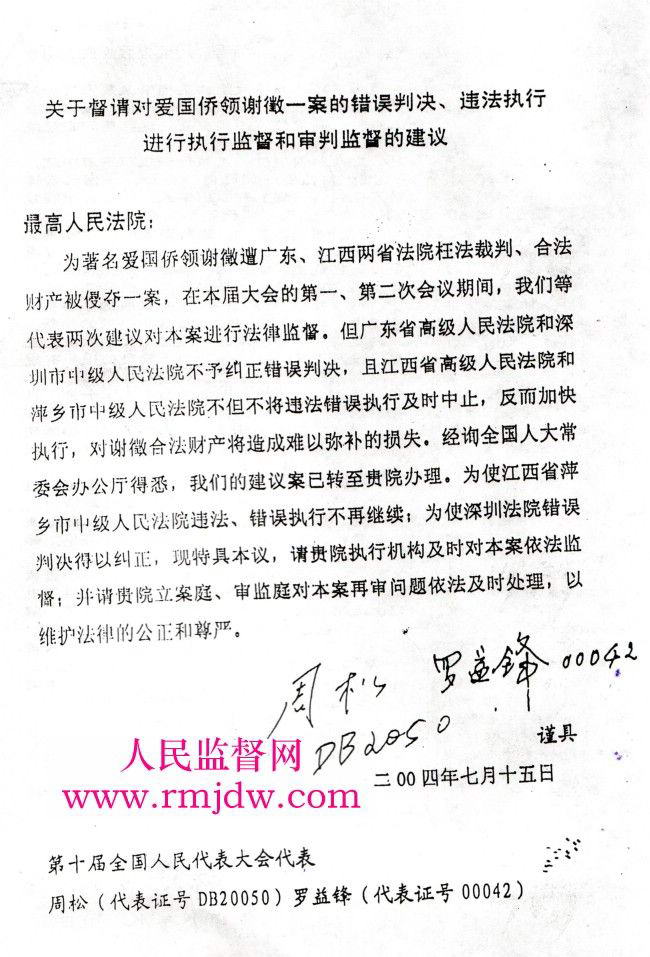 关于督请对爱国侨领谢徵一案的错误判决、违法执行
进行执行监督和审判监督的建议
最高人民法院：
为著名爱国侨领谢徵遭广东、江西两省法院枉法裁判、合法
财产被侵夺一案，在本届大会的第一、第二次会议期间，我们等
代表两次建议对本案进行法律监督。但广东省高级人民法院和深
圳市中级人民法院不予纠正错误判决，且江西省高级人民法院和
萍乡市中级人民法院不但不将违法错误执行及时中止，反而加快
执行，对谢徵合法财产将造成难以弥补的损失。经询全国人大常
委会办公厅得悉，我们的建议案已转至贵院办理。为使江西省萍
乡市中级人民法院违法、错误执行不再继续；为使深圳法院错误
判决得以纠正，现特具本议，请贵院执行机构及时对本案依法监
督；并请贵院立案庭、审监庭对本案再审问题依法及时处理，以
维护法律的公正和尊严。
周松 罗益锋 00042
DB20050
谨具
二00四年七月十五日
人民监督网
www.rmjdw.com
第十届全国人民代表大会代表
周松（代表证号DB20050）罗益锋（代表证号00042）